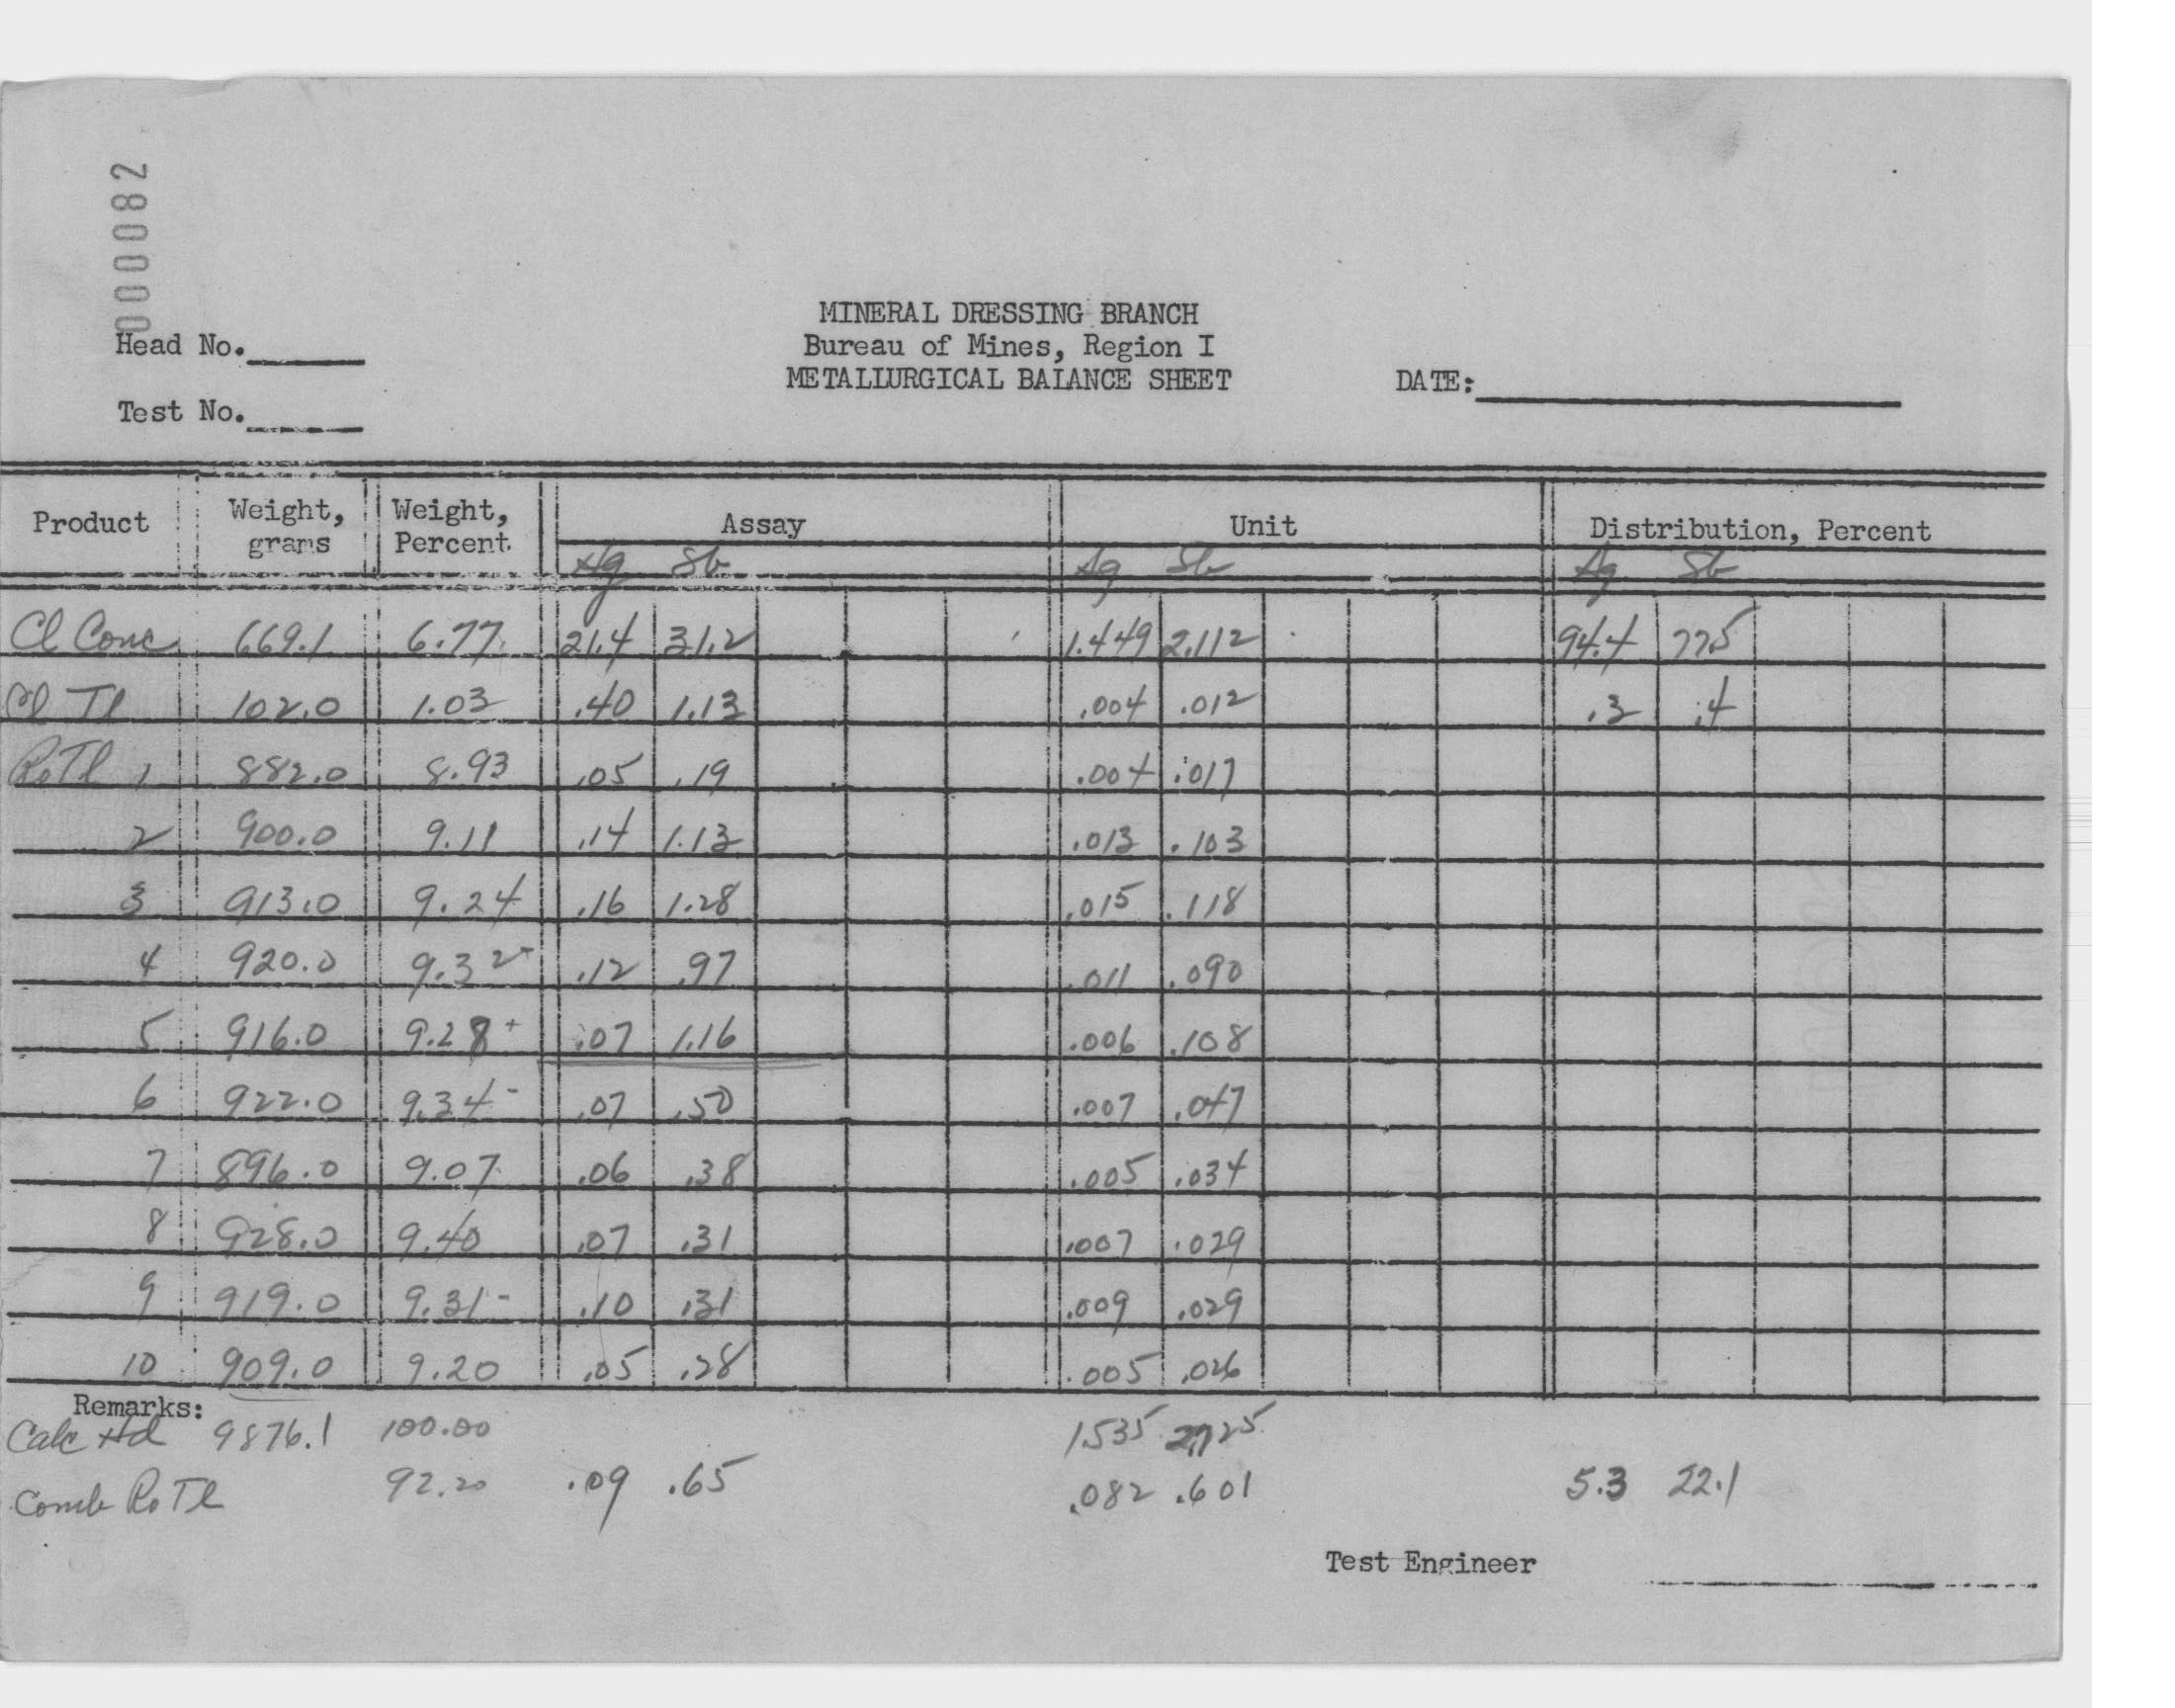 000082
MINERAL DRESSING BRANCH
Head No. Bureau of Mines, Region I
METALLURGICAL BALANCE SHEET DATE:
Test No.
Product Weight, grams Weight, Percent Assay Unit Distribution, Percent
Hg Sb Hg Sb Hg Sb
Cl Conc 669.1 6.77 21.4 31.2 1.449 2.112 94.4 77.5
Cl Tl 102.0 1.03 .40 1.13 .004 .012 .3 .4
Ro Tl 1 882.0 8.93 .05 .19 .004 .017
2 900.0 9.11 .14 1.13 .013 .103
3 913.0 9.24 .16 1.28 .015 .118
4 920.0 9.32- .12 .97 .011 .090
5 916.0 9.28+ .07 1.16 .006 .108
6 922.0 9.34- .07 .50 .007 .047
7 896.0 9.07 .06 .38 .005 .034
8 928.0 9.40 .07 .31 .007 .029
9 919.0 9.31- .10 .31 .009 .029
10 909.0 9.20 .05 .28 .005 .026
Remarks:
Calc Hd 9876.1 100.00 1.535 2.725
Comb Ro Tl 92.20 .09 .65 .082 .601 5.3 22.1
Test Engineer